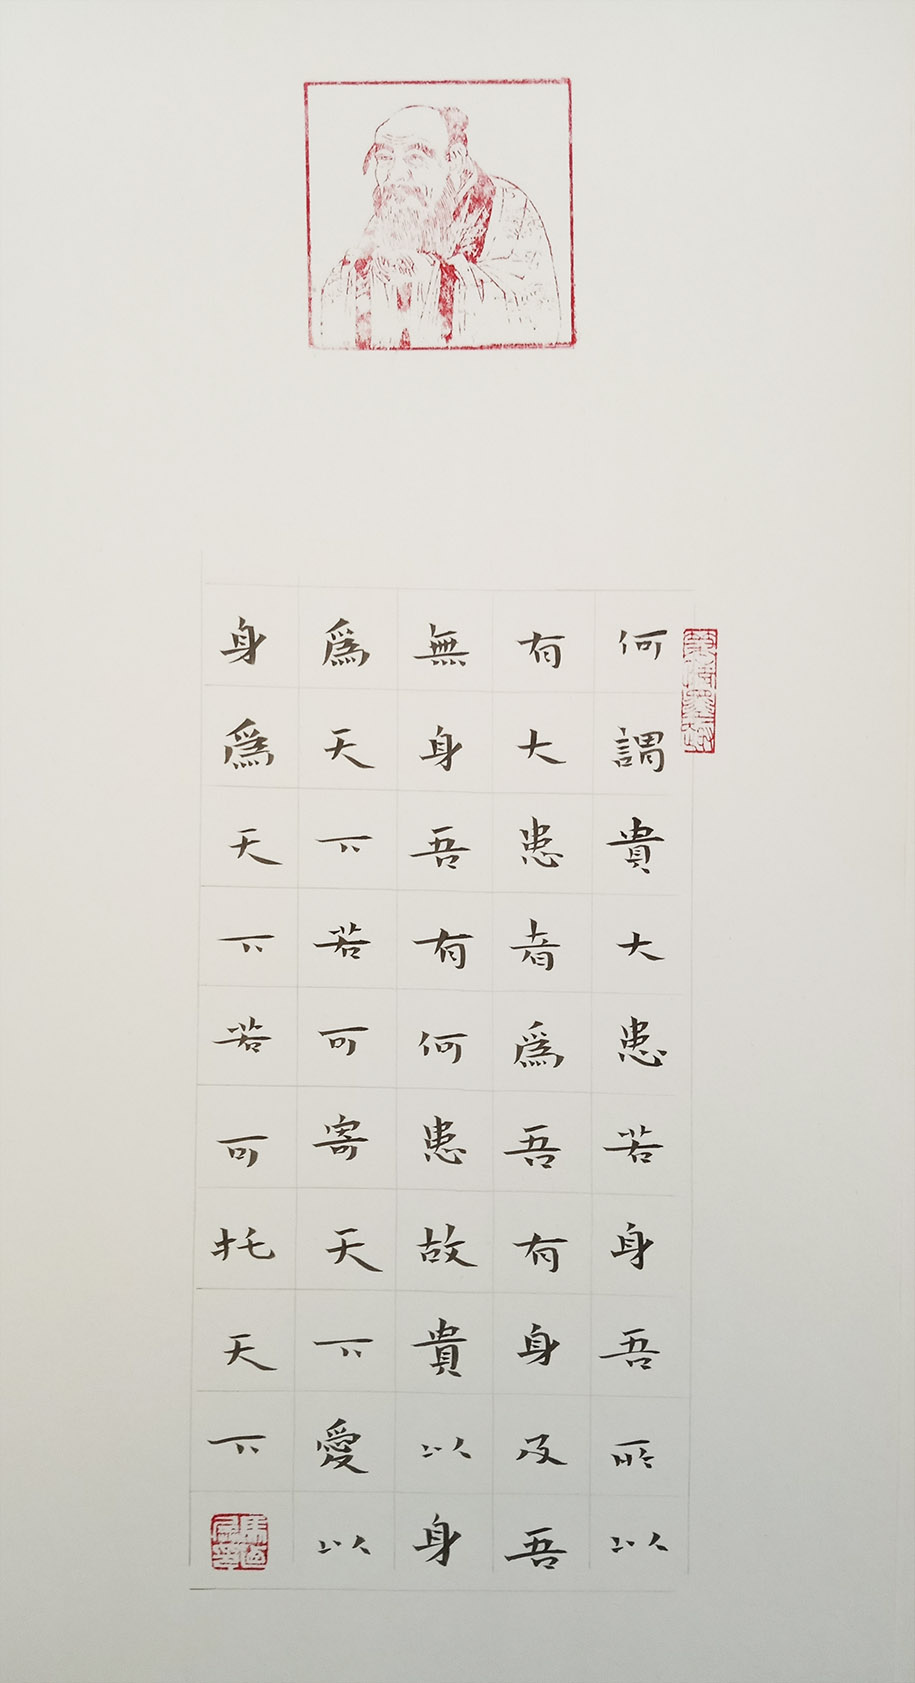 何謂貴大患若身吾所以
有大患者爲吾有身及吾
無身吾有何患故貴以身
爲天下若可寄天下愛以
身爲天下若可托天下